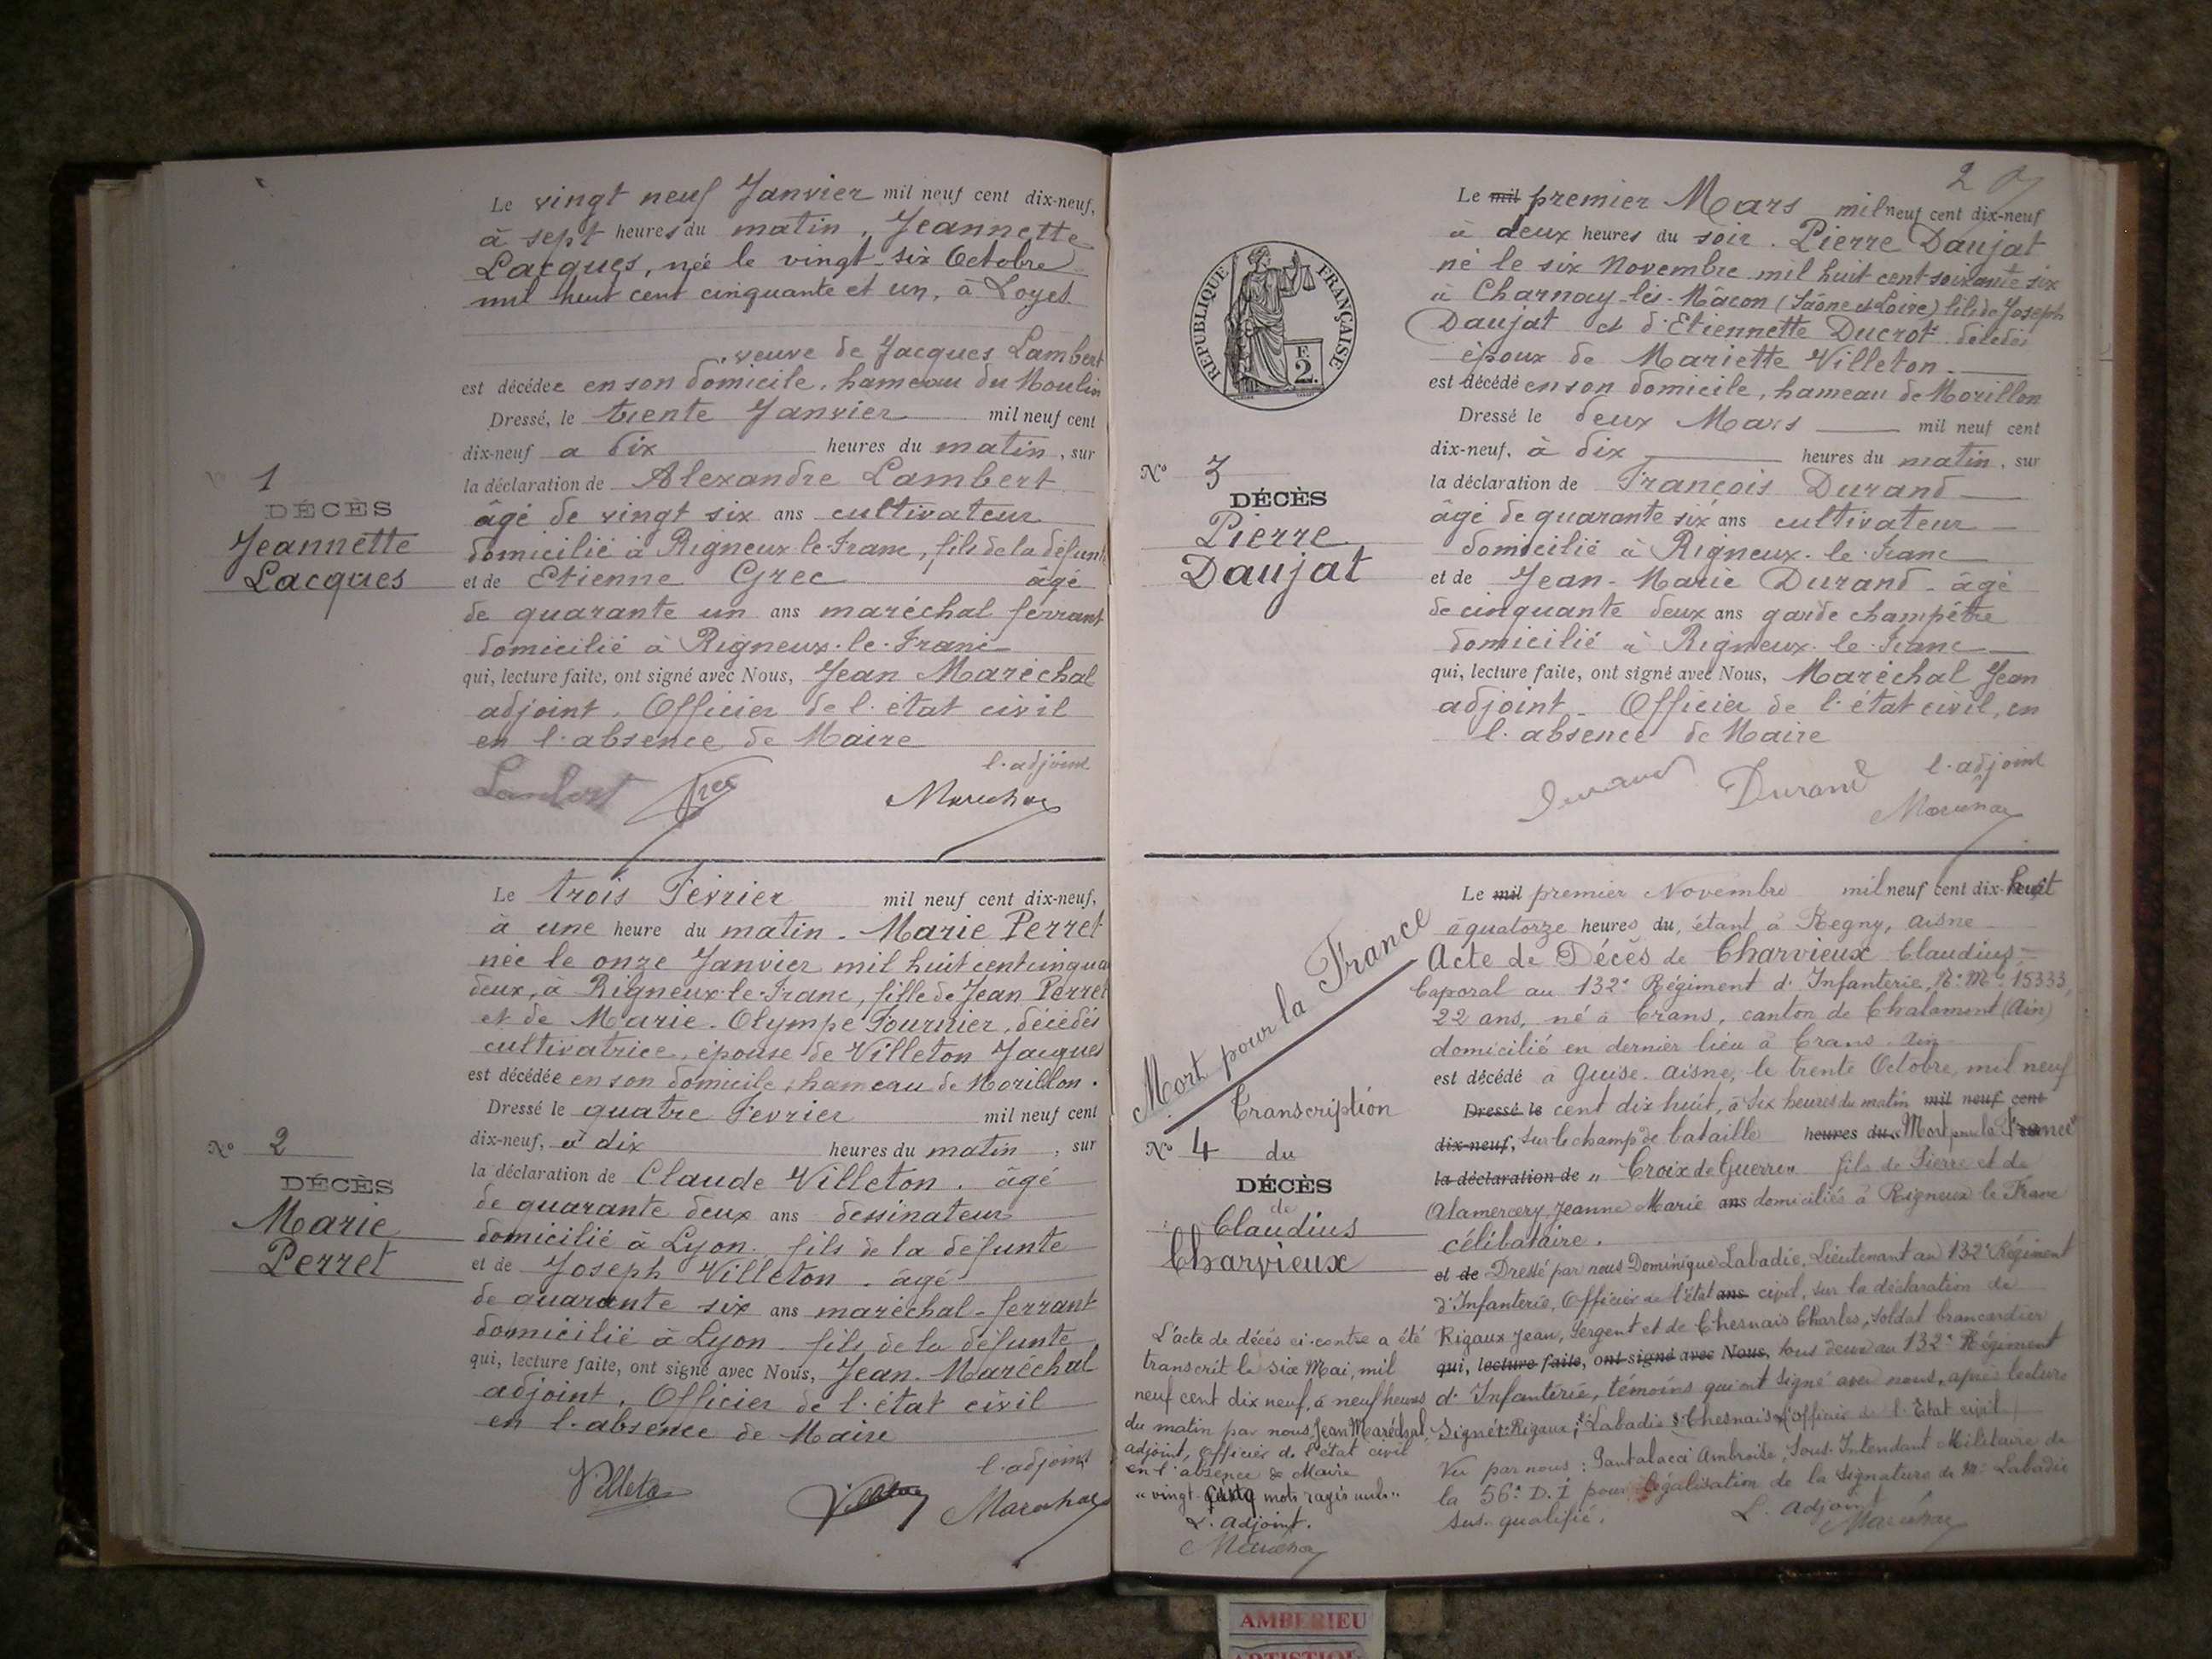 Le vingt neuf Janvier mil neuf cent dix-neuf,
à sept heures du matin, Jeannette
Lacques, née le vingt-six Octobre
mil huit cent cinquante et un, à Loyes
veuve de Jacques Lambert
est décédée en son domicile, hameau du Moulin
Dressé, le trente Janvier mil neuf cent
dix-neuf a dix heures du matin, sur
la déclaration de Alexandre Lambert
âgé de vingt six ans cultivateur
domicilié à Rigneux-le-Franc, fils de la défunte
et de Etienne Grec âgé
de quarante un ans maréchal ferrant
domicilié à Rigneux-le-Franc
qui, lecture faite, ont signé avec Nous, Jean Maréchal
adjoint, Officier de l'état civil
en l'absence de Maire
l'adjoint
Lambert Grec Marechal
1
DÉCÈS
Jeannette
Lacques
Le trois Février mil neuf cent dix-neuf,
à une heure du matin - Marie Perret
née le onze Janvier mil huit cent cinqua
deux, à Rigneux-le-Franc, fille de Jean Perret
et de Marie-Olympe Fournier, décédés
cultivatrice, épouse de Villeton Jacques
est décédée en son domicile, hameau de Morillon.
Dressé le quatre Fevrier mil neuf cent
dix-neuf, à dix heures du matin, sur
la déclaration de Claude Villeton, âgé
de quarante deux ans dessinateur
domicilié à Lyon, fils de la défunte
et de Joseph Villeton, âgé
de quarante six ans maréchal-ferrant
domicilié à Lyon, fils de la défunte
qui, lecture faite, ont signé avec Nous, Jean Maréchal
adjoint, Officier de l'état civil
en l'absence de Maire
l'adjoint
Villeton Villeton Marechal
No 2
DÉCÈS
Marie
Perret
2
Le mil premier Mars mil neuf cent dix-neuf
à deux heures du soir. Pierre Daujat
né le six Novembre mil huit cent soixante six
à Charnay-lès-Mâcon (Saône et Loire) fils de Joseph
Daujat et d'Etiennette Ducrot décédés
époux de Mariette Villeton
est décédé en son domicile, hameau de Morillon
Dressé le deux Mars mil neuf cent
dix-neuf, à dix heures du matin, sur
la déclaration de François Durand
âgé de quarante six ans cultivateur
domicilié à Rigneux-le-Franc
et de Jean-Marie Durand - âgé
de cinquante deux ans garde champêtre
domicilié à Rigneux-le-Franc
qui, lecture faite, ont signé avec Nous, Maréchal Jean
adjoint - Officier de l'état civil, en
l'absence de Maire
l'adjoint
Durand Durand Marechal
RÉPUBLIQUE FRANÇAISE
F.
2.
No 3
DÉCÈS
Pierre
Daujat
Le mil premier Novembre mil neuf cent dix-huit
à quatorze heures du, étant à Regny, Aisne
Acte de Décès de Charvieux Claudius,
Caporal au 132e Régiment d'Infanterie, No Mle 15333,
22 ans, né à Crans, canton de Chalamont (Ain)
domicilié en dernier lieu à Crans Ain
est décédé à Guise, Aisne, le trente Octobre, mil neuf
Dressé le cent dix huit, à six heures du matin mil neuf cent
dix-neuf, sur le champ de bataille heures du "Mort pour la France"
la déclaration de "Croix de Guerre" fils de Pierre et de
Alamercery Jeanne Marie ans domiciliés à Rigneux le Franc
célibataire.
et de Dressé par nous Dominique Labadie, Lieutenant au 132e Régiment
d'Infanterie, Officier de l'état ans civil, sur la déclaration de
Rigaux Jean, Sergent et de Chesnais Charles, soldat brancardier
qui, lecture faite, ont signé avec Nous, tous deux au 132e Régiment
d'Infanterie, témoins qui ont signé avec nous, après lecture
Signé: Rigaux, Labadie Chesnais l'officier de l'Etat civil
Vu par nous: Santalacci Ambroise, Sous-Intendant Militaire de
la 56e D.I pour légalisation de la signature de Mr Labadie
sus-qualifié.
L'adjoint
Marechal
Mort pour la France
Transcription
No 4 du
DÉCÈS
de
Claudius
Charvieux
L'acte de décès ci-contre a été
transcrit le six Mai, mil
neuf cent dix neuf, à neuf heures
du matin par nous, Jean Maréchal
adjoint, officier de l'état civil
en l'absence de Maire
"vingt mots rayés nuls"
L'adjoint.
Marechal
AMBERIEU